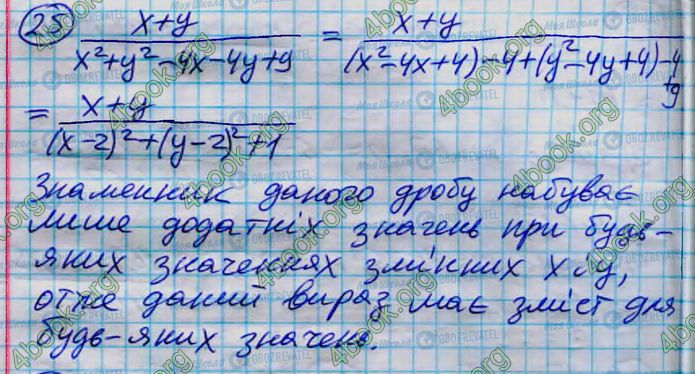 25) (x+y)/(x²+y²-4x-4y+9) = (x+y)/((x²-4x+4)-4+(y²-4y+4)-4+9)
= (x+y)/((x-2)²+(y-2)²+1)
Знаменник даного дробу набуває
лише додатніх значень при будь-
яких значеннях змінних x і y,
отже даний вираз має зміст для
будь-яких значень.
4book.org
Моя Школа
OBOZREVATEL